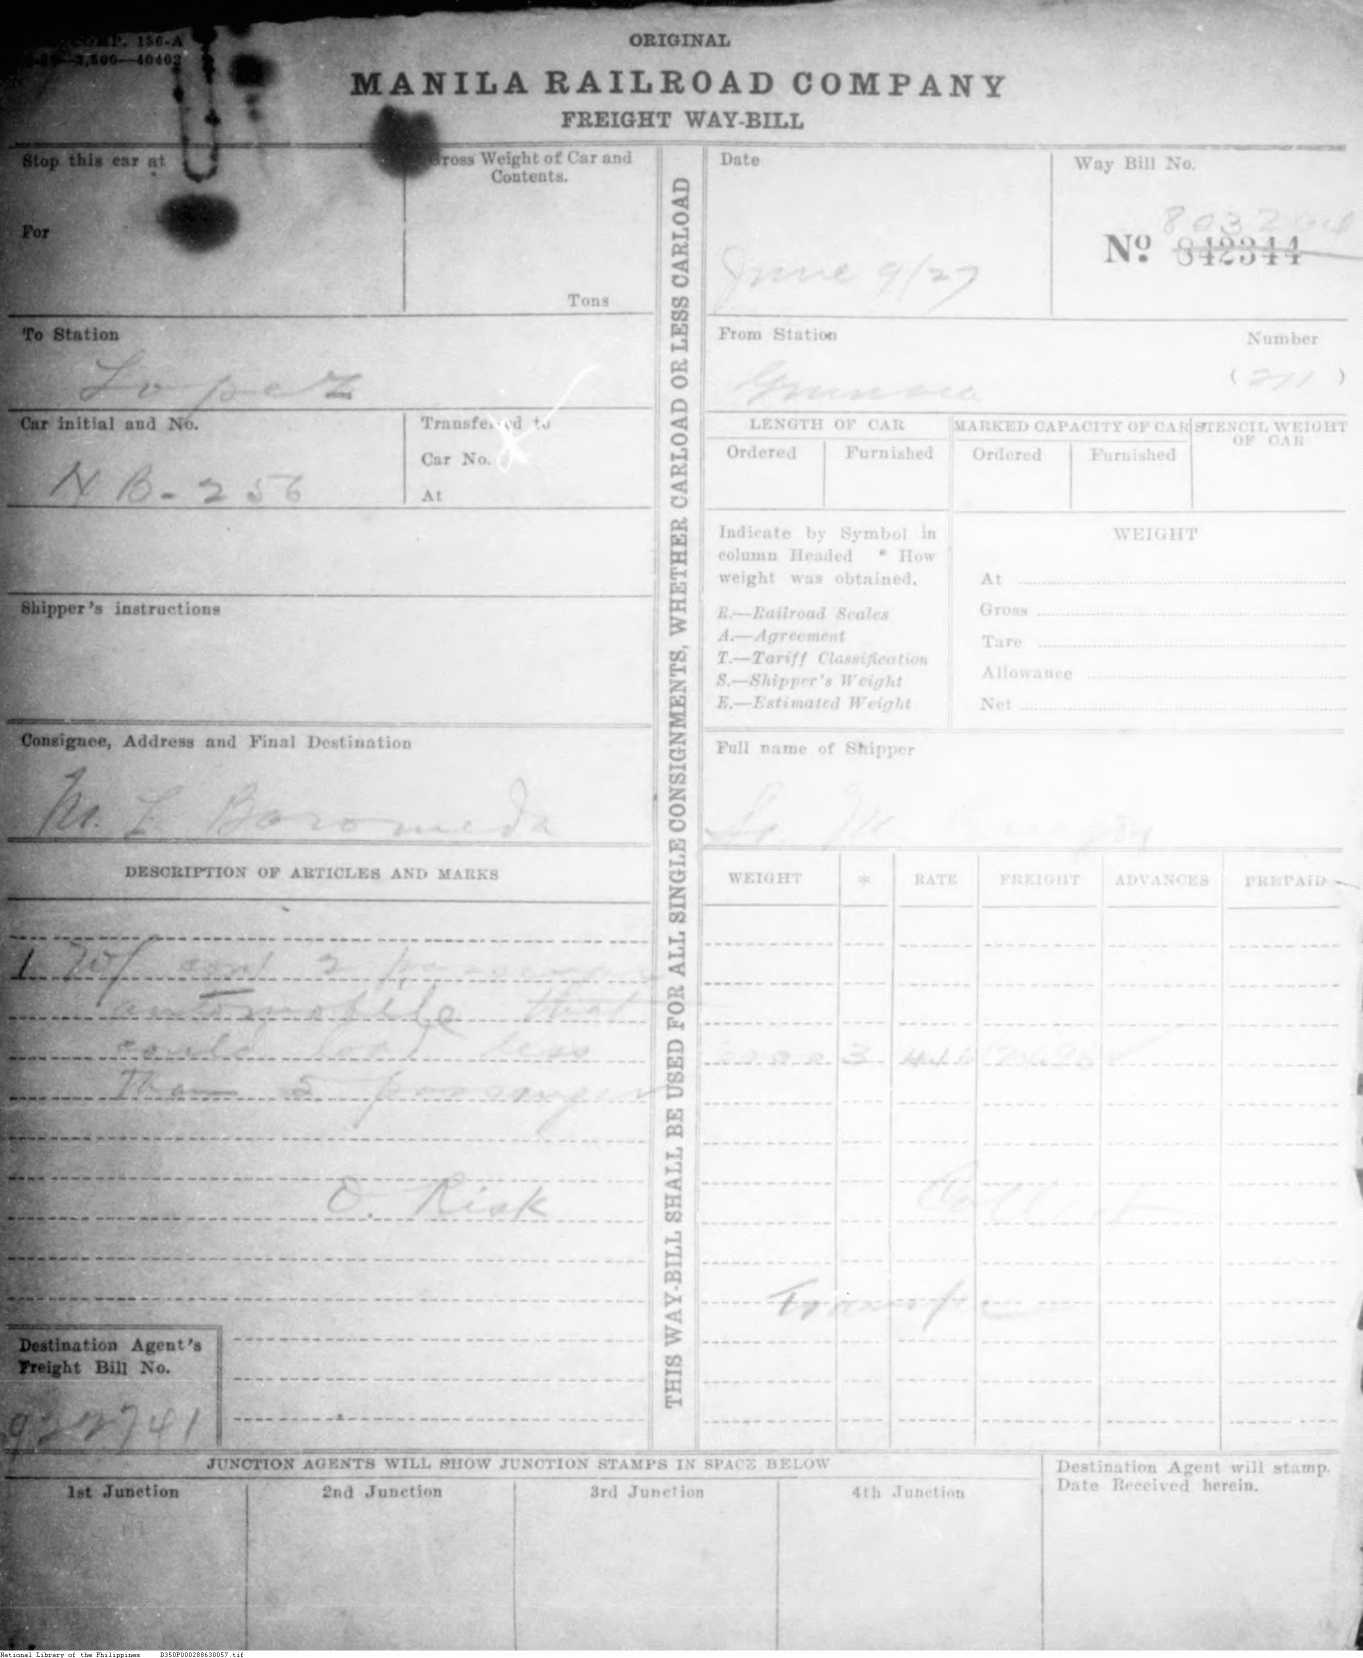 156-A
ORIGINAL
MANILA RAILROAD COMPANY
FREIGHT WAY-BILL
Stop this car at
For
Gross Weight of Car and
Contents.
Tons
THIS WAY-BILL SHALL BE USED FOR ALL SINGLE CONSIGNMENTS, WHETHER CARLOAD OR LESS CARLOAD
Date
June 9/27
Way Bill No.
No. 842344
To Station
Lopez
From Station
Number
Car initial and No.
Transferred to
Car No.
At
LENGTH OF CAR
Ordered
Furnished
MARKED CAPACITY OF CAR
Ordered
Furnished
STENCIL WEIGHT
OF CAR
Indicate by Symbol in
column Headed * How
weight was obtained.
R.—Railroad Scales
A.—Agreement
T.—Tariff Classification
S.—Shipper's Weight
E.—Estimated Weight
WEIGHT
At
Gross
Tare
Allowance
Net
Shipper's instructions
Consignee, Address and Final Destination
Full name of Shipper
DESCRIPTION OF ARTICLES AND MARKS
WEIGHT
*
RATE
FREIGHT
ADVANCES
PREPAID
automobile that
could load less
than 5 passengers
O. Risk
Collect
Destination Agent's
Freight Bill No.
922741
JUNCTION AGENTS WILL SHOW JUNCTION STAMPS IN SPACE BELOW
1st Junction
2nd Junction
3rd Junction
4th Junction
Destination Agent will stamp.
Date Received herein.
National Library of the Philippines D350P000288638057.tif